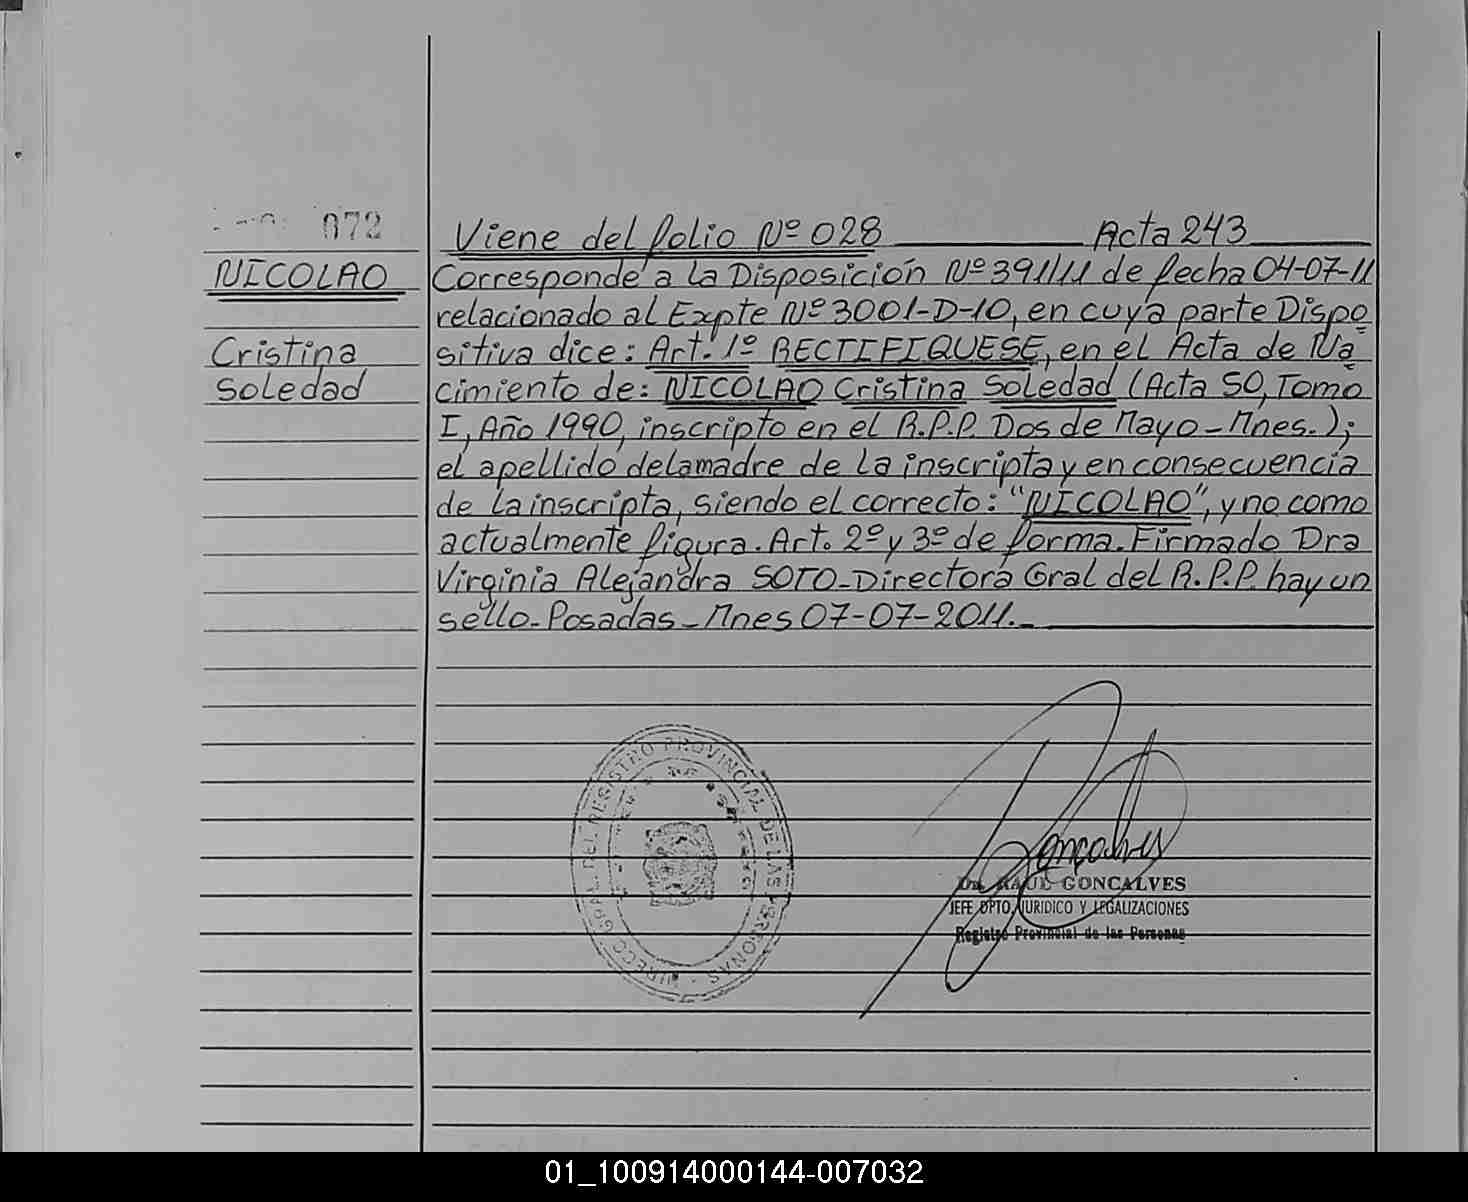 072
Viene del folio Nº 028 Acta 243
NICOLAO
Cristina
Soledad
Corresponde a la Disposición Nº 391/11 de fecha 04-07-11
relacionado al Expte Nº 3001-D-10, en cuya parte Dispo
sitiva dice: Art. 1º RECTIFIQUESE, en el Acta de Na
cimiento de: NICOLAO Cristina Soledad (Acta 50, Tomo
I, Año 1990, inscripto en el R.P.P. Dos de Mayo-Mnes.);
el apellido de la madre de la inscripta y en consecuencia
de la inscripta, siendo el correcto: "NICOLAO", y no como
actualmente figura. Art. 2º y 3º de forma. Firmado Dra
Virginia Alejandra SOTO-Directora Gral del R.P.P. hay un
sello-Posadas-Mnes 07-07-2011.-
DIRECC. GRAL. DEL REGISTRO PROVINCIAL DE LAS PERSONAS
Goncalves
Dr. RAUL GONCALVES
JEFE DPTO. JURIDICO Y LEGALIZACIONES
Registro Provincial de las Personas
01_100914000144-007032